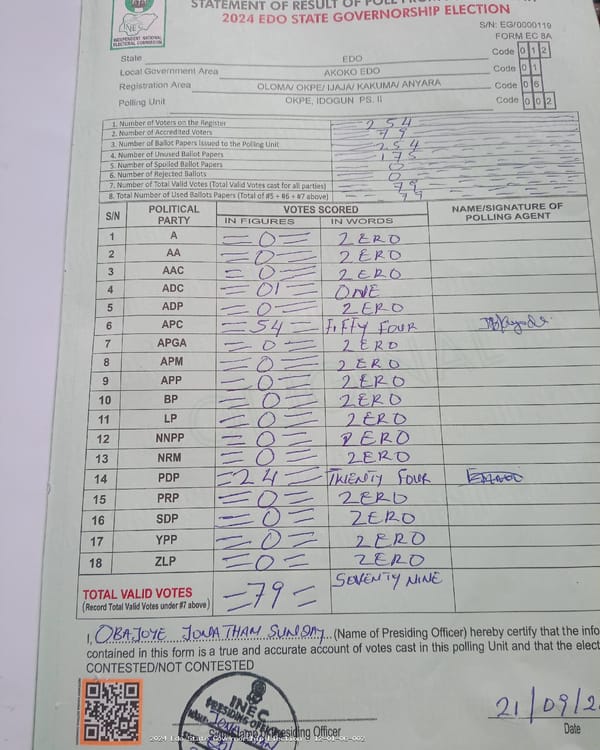 STATEMENT OF RESULT OF POLL FROM
2024 EDO STATE GOVERNORSHIP ELECTION
INEC
INDEPENDENT NATIONAL
ELECTORAL COMMISSION
S/N: EG/0000119
FORM EC 8A
State EDO Code 0 1 2
Local Government Area AKOKO EDO Code 0 1
Registration Area OLOMA/ OKPE/ IJAJA/ KAKUMA/ ANYARA Code 0 6
Polling Unit OKPE, IDOGUN PS. II Code 0 0 2
1. Number of Voters on the Register 254
2. Number of Accredited Voters 79
3. Number of Ballot Papers Issued to the Polling Unit 254
4. Number of Unused Ballot Papers 175
5. Number of Spoiled Ballot Papers 0
6. Number of Rejected Ballots 0
7. Number of Total Valid Votes (Total Valid Votes cast for all parties) 79
8. Total Number of Used Ballots Papers (Total of #5 + #6 + #7 above) 79
S/N POLITICAL PARTY VOTES SCORED NAME/SIGNATURE OF POLLING AGENT
IN FIGURES IN WORDS
1 A =0= ZERO
2 AA =0= ZERO
3 AAC =0= ZERO
4 ADC =01= ONE
5 ADP =0= ZERO
6 APC =54= FIFTY FOUR
7 APGA =0= ZERO
8 APM =0= ZERO
9 APP =0= ZERO
10 BP =0= ZERO
11 LP =0= ZERO
12 NNPP =0= ZERO
13 NRM =0= ZERO
14 PDP =24= TWENTY FOUR
15 PRP =0= ZERO
16 SDP =0= ZERO
17 YPP =0= ZERO
18 ZLP =0= ZERO
TOTAL VALID VOTES =79= SEVENTY NINE
(Record Total Valid Votes under #7 above)
I, OBAJOYE JONATHAN SUNDAY (Name of Presiding Officer) hereby certify that the info
contained in this form is a true and accurate account of votes cast in this polling Unit and that the elect
CONTESTED/NOT CONTESTED
INEC
PRESIDING OFFICER
21/09/2
Presiding Officer Date
2024 Edo State Governorship Election